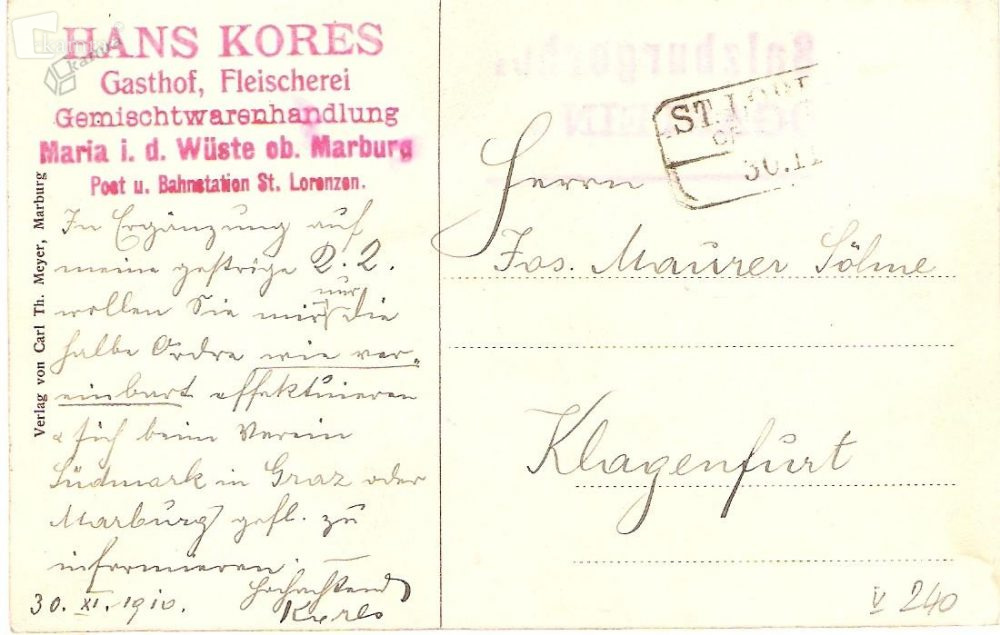 HANS KORES
Gasthof, Fleischerei
Gemischtwarenhandlung
Maria i. d. Wüste ob. Marburg
Post u. Bahnstation St. Lorenzen.
Verlag von Carl Th. Meyer, Marburg
In Ergänzung auf
meine gestrige 2.2.
nur
wollen Sie mir die
halbe Ordre wie ver-
einbart effektuieren
& sich beim Verein
Südmark in Graz oder
Marburg gefl. zu
informieren.
Hochachtend
30. XI. 1910.
Salzburger
ST. LORE
30.11
Herrn
Jos. Maurer Söhne
Klagenfurt
V 240